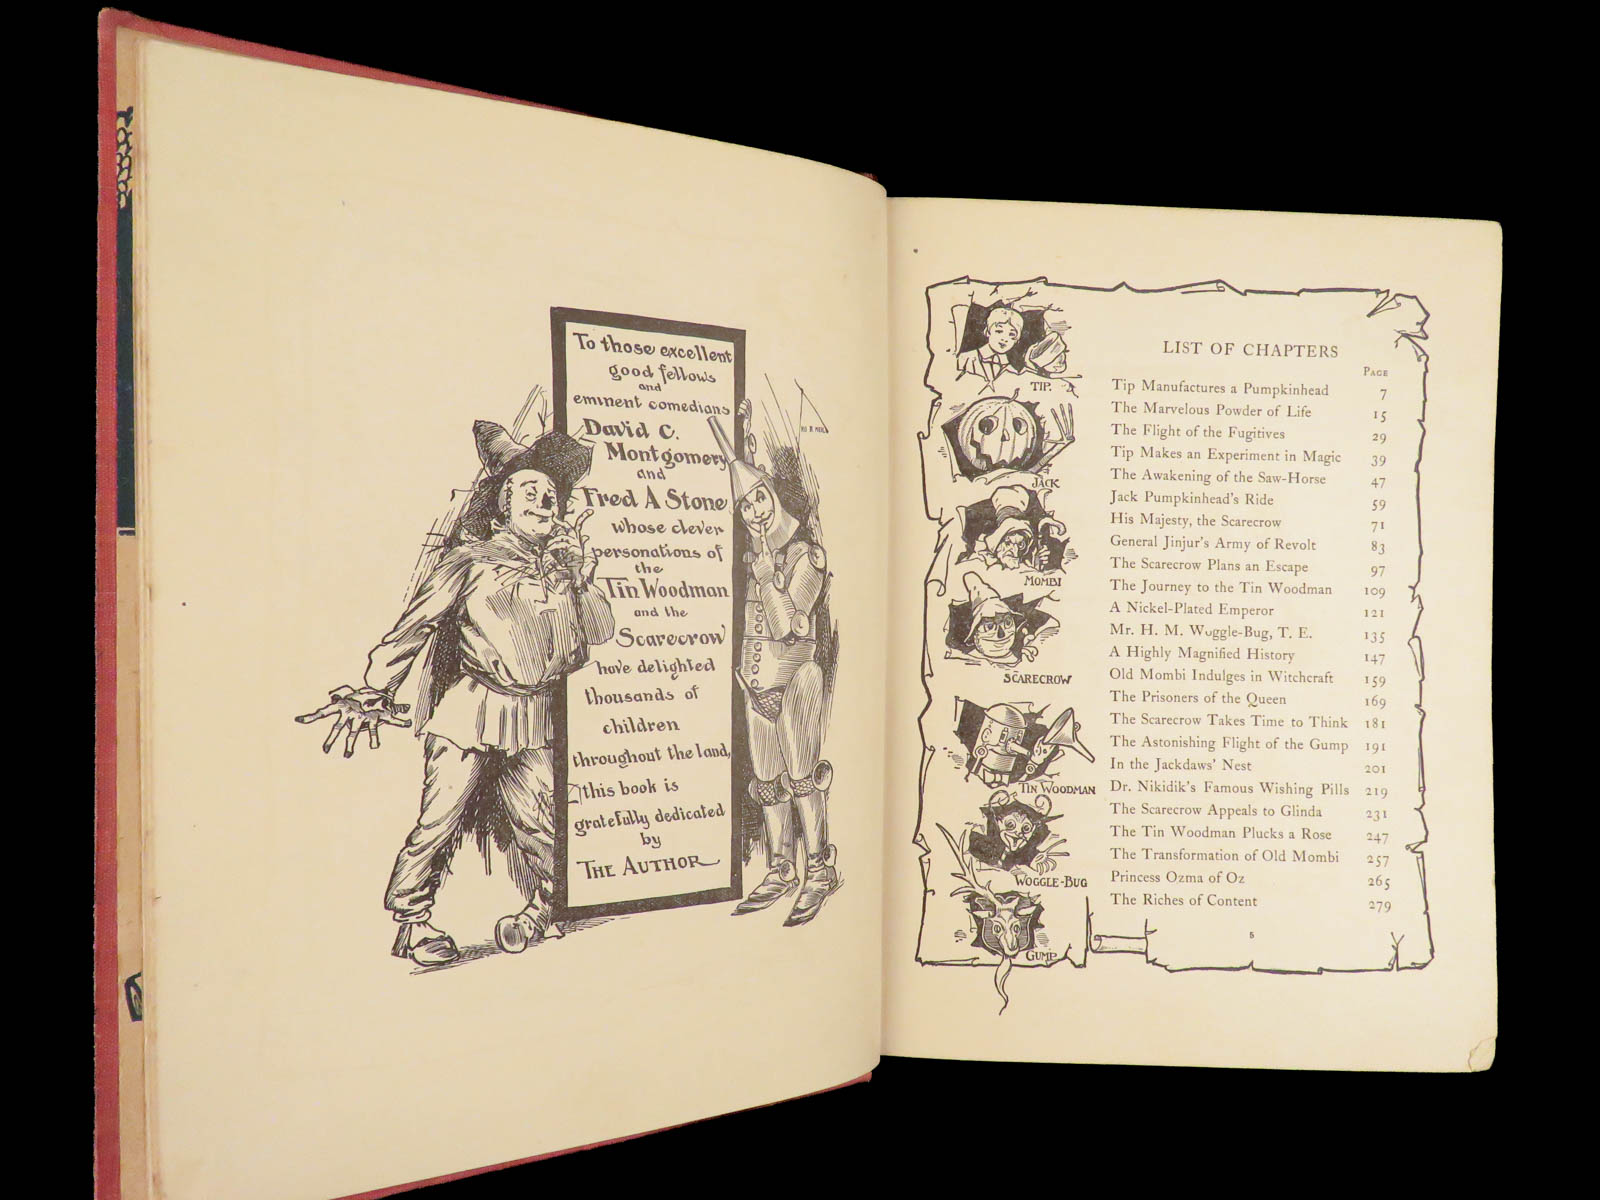 To those excellent
good fellows
and
eminent comedians
David C.
Montgomery
and
Fred A Stone
whose clever
personations of
the
Tin Woodman
and the
Scarecrow
have delighted
thousands of
children
throughout the land,
this book is
gratefully dedicated
by
THE AUTHOR
LIST OF CHAPTERS
PAGE
Tip Manufactures a Pumpkinhead 7
The Marvelous Powder of Life 15
The Flight of the Fugitives 29
Tip Makes an Experiment in Magic 39
The Awakening of the Saw-Horse 47
Jack Pumpkinhead's Ride 59
His Majesty, the Scarecrow 71
General Jinjur's Army of Revolt 83
The Scarecrow Plans an Escape 97
The Journey to the Tin Woodman 109
A Nickel-Plated Emperor 121
Mr. H. M. Woggle-Bug, T. E. 135
A Highly Magnified History 147
Old Mombi Indulges in Witchcraft 159
The Prisoners of the Queen 169
The Scarecrow Takes Time to Think 181
The Astonishing Flight of the Gump 191
In the Jackdaws' Nest 201
Dr. Nikidik's Famous Wishing Pills 219
The Scarecrow Appeals to Glinda 231
The Tin Woodman Plucks a Rose 247
The Transformation of Old Mombi 257
Princess Ozma of Oz 265
The Riches of Content 279
5
TIP.
JACK
MOMBI
SCARECROW
TIN WOODMAN
WOGGLE-BUG
GUMP